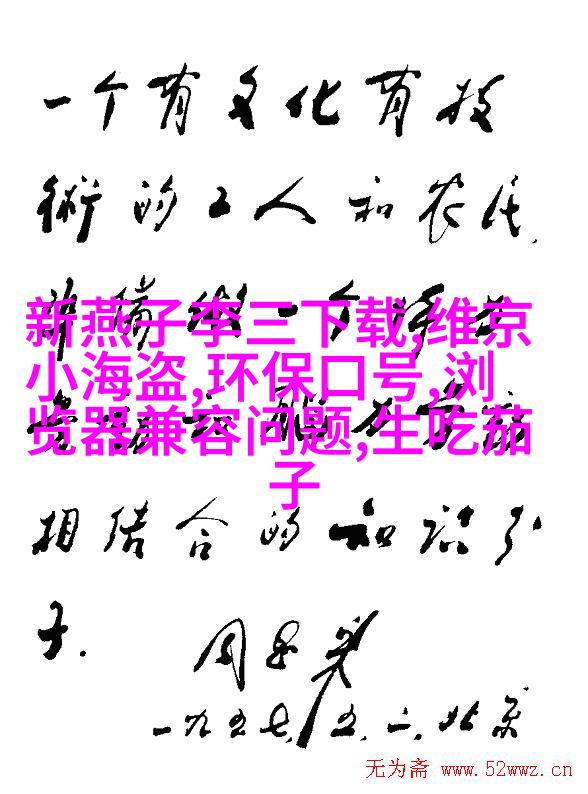 一个有文化有技
術的工人和农民,
新燕子李三下载,维京
小海盗,环保口号,浏
览器兼容问题,生吃茄
子
相结合的知识分
子.
周恩来
一九五七.五.一.北京
无为斋 www.52wwz.cn